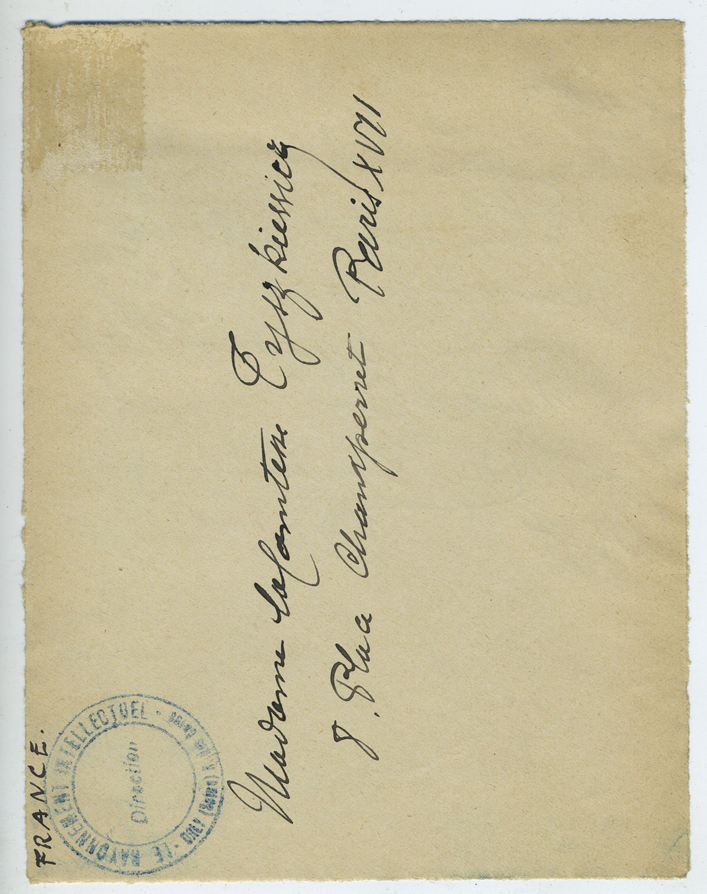 Madame la Comtesse Tyszkiewicz
8. Place Champerret Paris XVII
FRANCE.
LE RAYONNEMENT INTELLECTUEL
Direction